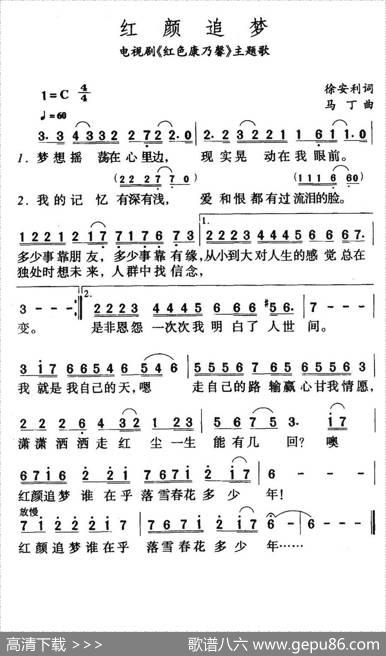 红颜追梦
电视剧《红色康乃馨》主题歌
1=C 4/4
♩=60
徐安利词
马丁曲
3·3 4332 2720· 0 1·2 3221 1 611·0
1.梦想摇 荡在心里边, 现实晃 动在我眼前。
(22 27 7 0) (111 6 60)
2.我的记 忆有深有浅, 爱和恨都有过流泪的脸。
1221 217 1767673 2223 4445 666 567
多少事靠朋友,多少事靠有缘,从小到大对人生的感觉总在
独处时想未来,人群中找信念,
3 - - - 2223 4445 6 66 #56· 7 - - -
变。 是非恩怨 一次次我 明白了人世 间。
我 就是我自己的天,嗯 走自己的路 输赢心甘我情愿,
潇潇洒洒走红 尘一生 能有几 回?噢
红颜追梦 谁在乎 落雪春花多少 年!
放慢
红颜追梦谁在乎 落雪春花 多少 年……
高清下载 >>>
歌谱八六 → www.gepu86.com